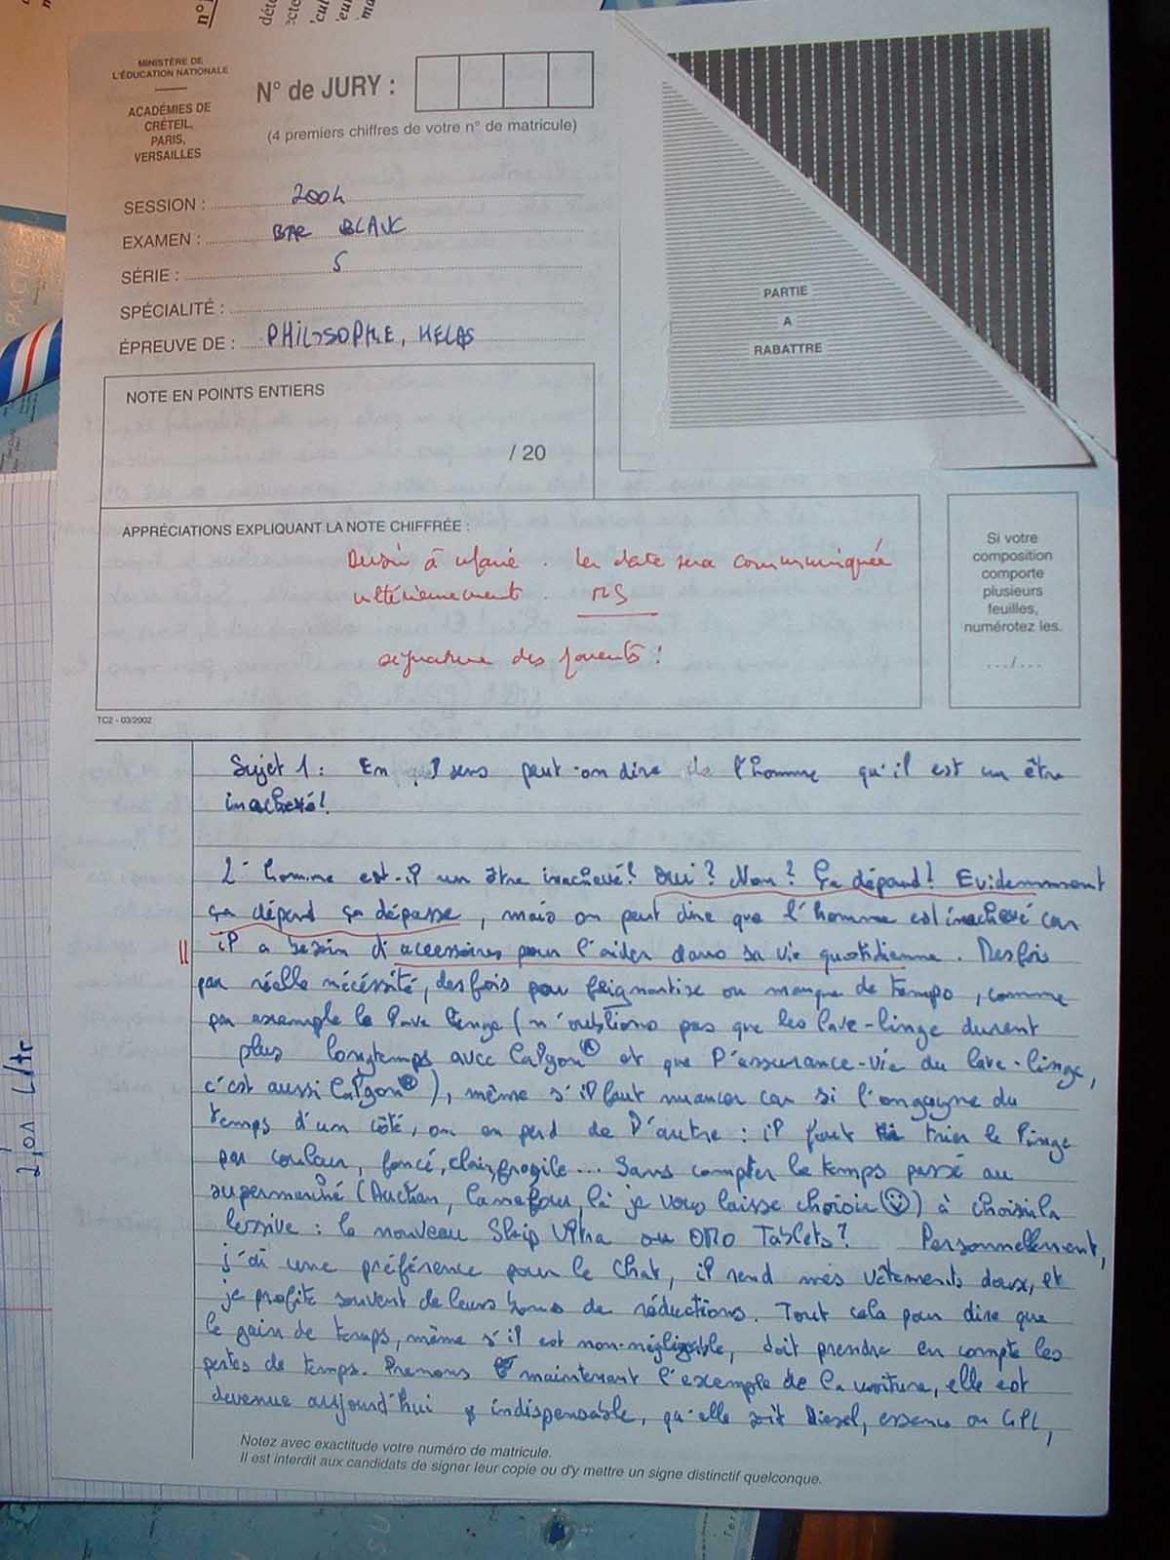 n°
MINISTÈRE DE
L'ÉDUCATION NATIONALE
ACADÉMIES DE
CRÉTEIL,
PARIS,
VERSAILLES
N° de JURY :
(4 premiers chiffres de votre n° de matricule)
SESSION : 2004
EXAMEN : BAC BLANC
SÉRIE : S
SPÉCIALITÉ :
ÉPREUVE DE : PHILOSOPHIE, HELAS
PARTIE
A
RABATTRE
NOTE EN POINTS ENTIERS
/ 20
APPRÉCIATIONS EXPLIQUANT LA NOTE CHIFFRÉE :
Devoir à refaire. La date sera communiquée
ultérieurement.
signature des parents !
Si votre
composition
comporte
plusieurs
feuilles,
numérotez les.
.../...
TC2 - 03/2002
Sujet 1 : En quel sens peut-on dire de l'homme qu'il est un être
inachevé?
L'homme est-il un être inachevé? Oui? Non? Ça dépend! Evidemmment
ça dépend ça dépasse, mais on peut dire que l'homme est inachevé car
il a besoin d'accessoires pour l'aider dans sa vie quotidienne. Des fois
par réelle nécéssité, des fois pour feignantise ou manque de temps, comme
par exemple le lave linge (n'oublions pas que les lave-linge durent
plus longtemps avec Calgon® et que l'assurance-vie du lave-linge,
c'est aussi Calgon®), même s'il faut nuancer car si l'on gagne du
temps d'un côté, on en perd de l'autre : il faut trier le linge
par couleur, foncé, clair, fragile... Sans compter le temps passé au
supermarché (Auchan, Carrefour, là je vous laisse choisir ☺) à choisir la
lessive : le nouveau Skip Ultra ou OMO Tablets? Personnellement,
j'ai une préférence pour le Chat, il rend mes vêtements doux, et
je profite souvent de leurs bons de réductions. Tout cela pour dire que
le gain de temps, même s'il est non-négligeable, doit prendre en compte les
pertes de temps. Prenons maintenant l'exemple de la voiture, elle est
devenue aujourd'hui indispensable, qu'elle soit Diesel, essence ou GPL,
Notez avec exactitude votre numéro de matricule.
Il est interdit aux candidats de signer leur copie ou d'y mettre un signe distinctif quelconque.